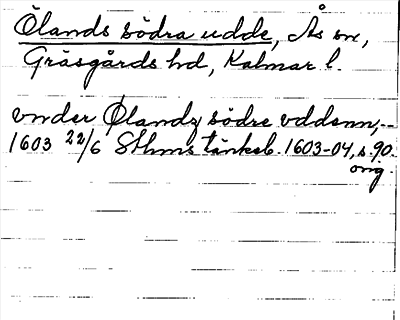 Ölands södra udde, Ås sn,
Gräsgårds hd, Kalmar l.
vnder Ølandz södre vddenn,--
1603 22/6 Sthms tänkeb. 1603-04, s. 90.
orig.